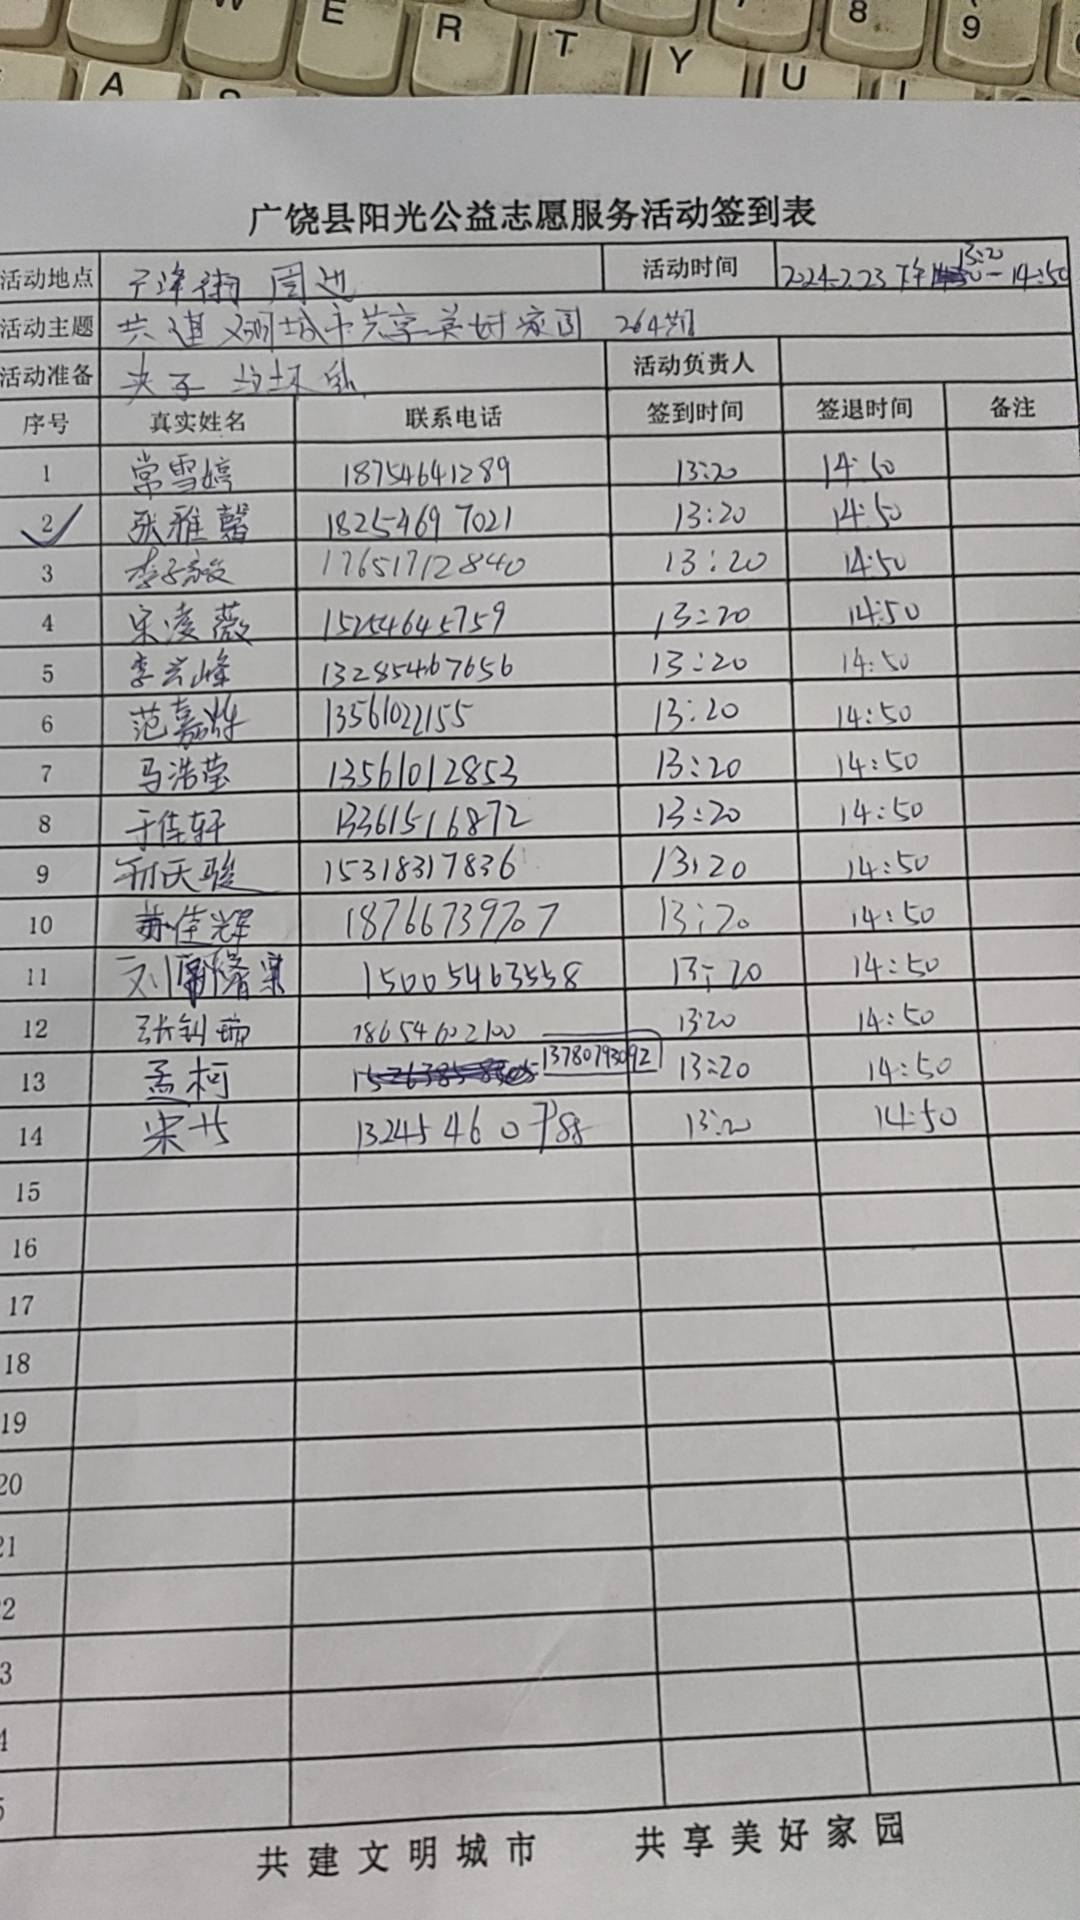 W E R T Y U 8 9
A
广饶县阳光公益志愿服务活动签到表
活动地点 周边 活动时间 2024.2.23 下午 13:20-14:50
活动主题 共建文明城市共享美好家园 264期
活动准备 夹子 垃圾 活动负责人
序号 真实姓名 联系电话 签到时间 签退时间 备注
1 常雪婷 18754641289 13:20 14:50
2 张雅馨 18254697021 13:20 14:50
3 李子毅 17651712840 13:20 14:50
4 宋凌薇 15254645759 13:20 14:50
5 李兴峰 13285467656 13:20 14:50
6 范嘉烨 13561022155 13:20 14:50
7 马浩莹 13561012853 13:20 14:50
8 于佳轩 13361516872 13:20 14:50
9 邢天骏 15318317836 13:20 14:50
10 苏佳辉 18766739707 13:20 14:50
11 刘 15005463558 13:20 14:50
12 张钊瑞 18654602100 13:20 14:50
13 孟柯 13780793092 13:20 14:50
14 宋 13:20 14:50
15
16
17
18
19
20
21
22
23
24
25
共建文明城市 共享美好家园